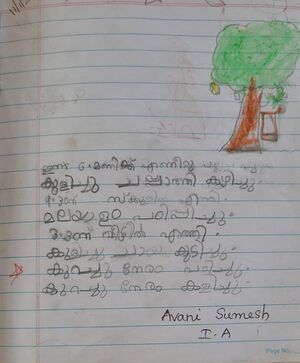 ഇന്ന് 6 മണിക്ക് എണീറ്റു
കുളിച്ചു ചപ്പാത്തി കഴിച്ചു.
9.30ന് സ്കൂളിൽ എത്തി.
മലയാളം പഠിപ്പിച്ചു.
3.30ന് വീട്ടിൽ എത്തി.
കുളിച്ചു ചായ കുടിച്ചു.
കുറച്ചു നേരം പഠിച്ചു.
കുറച്ചു നേരം കളിച്ചു.
Avani Sumesh
I.A
Page No.